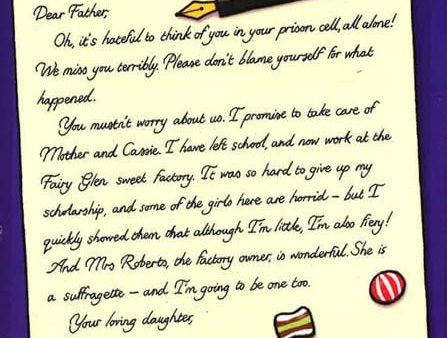 Dear Father,
Oh, it's hateful to think of you in your prison cell, all alone!
We miss you terribly. Please don't blame yourself for what
happened.
You mustn't worry about us. I promise to take care of
Mother and Cassie. I have left school, and now work at the
Fairy Glen sweet factory. It was so hard to give up my
scholarship, and some of the girls here are horrid – but I
quickly showed them that although I'm little, I'm also fiery!
And Mrs Roberts, the factory owner, is wonderful. She is
a suffragette – and I'm going to be one too.
Your loving daughter,